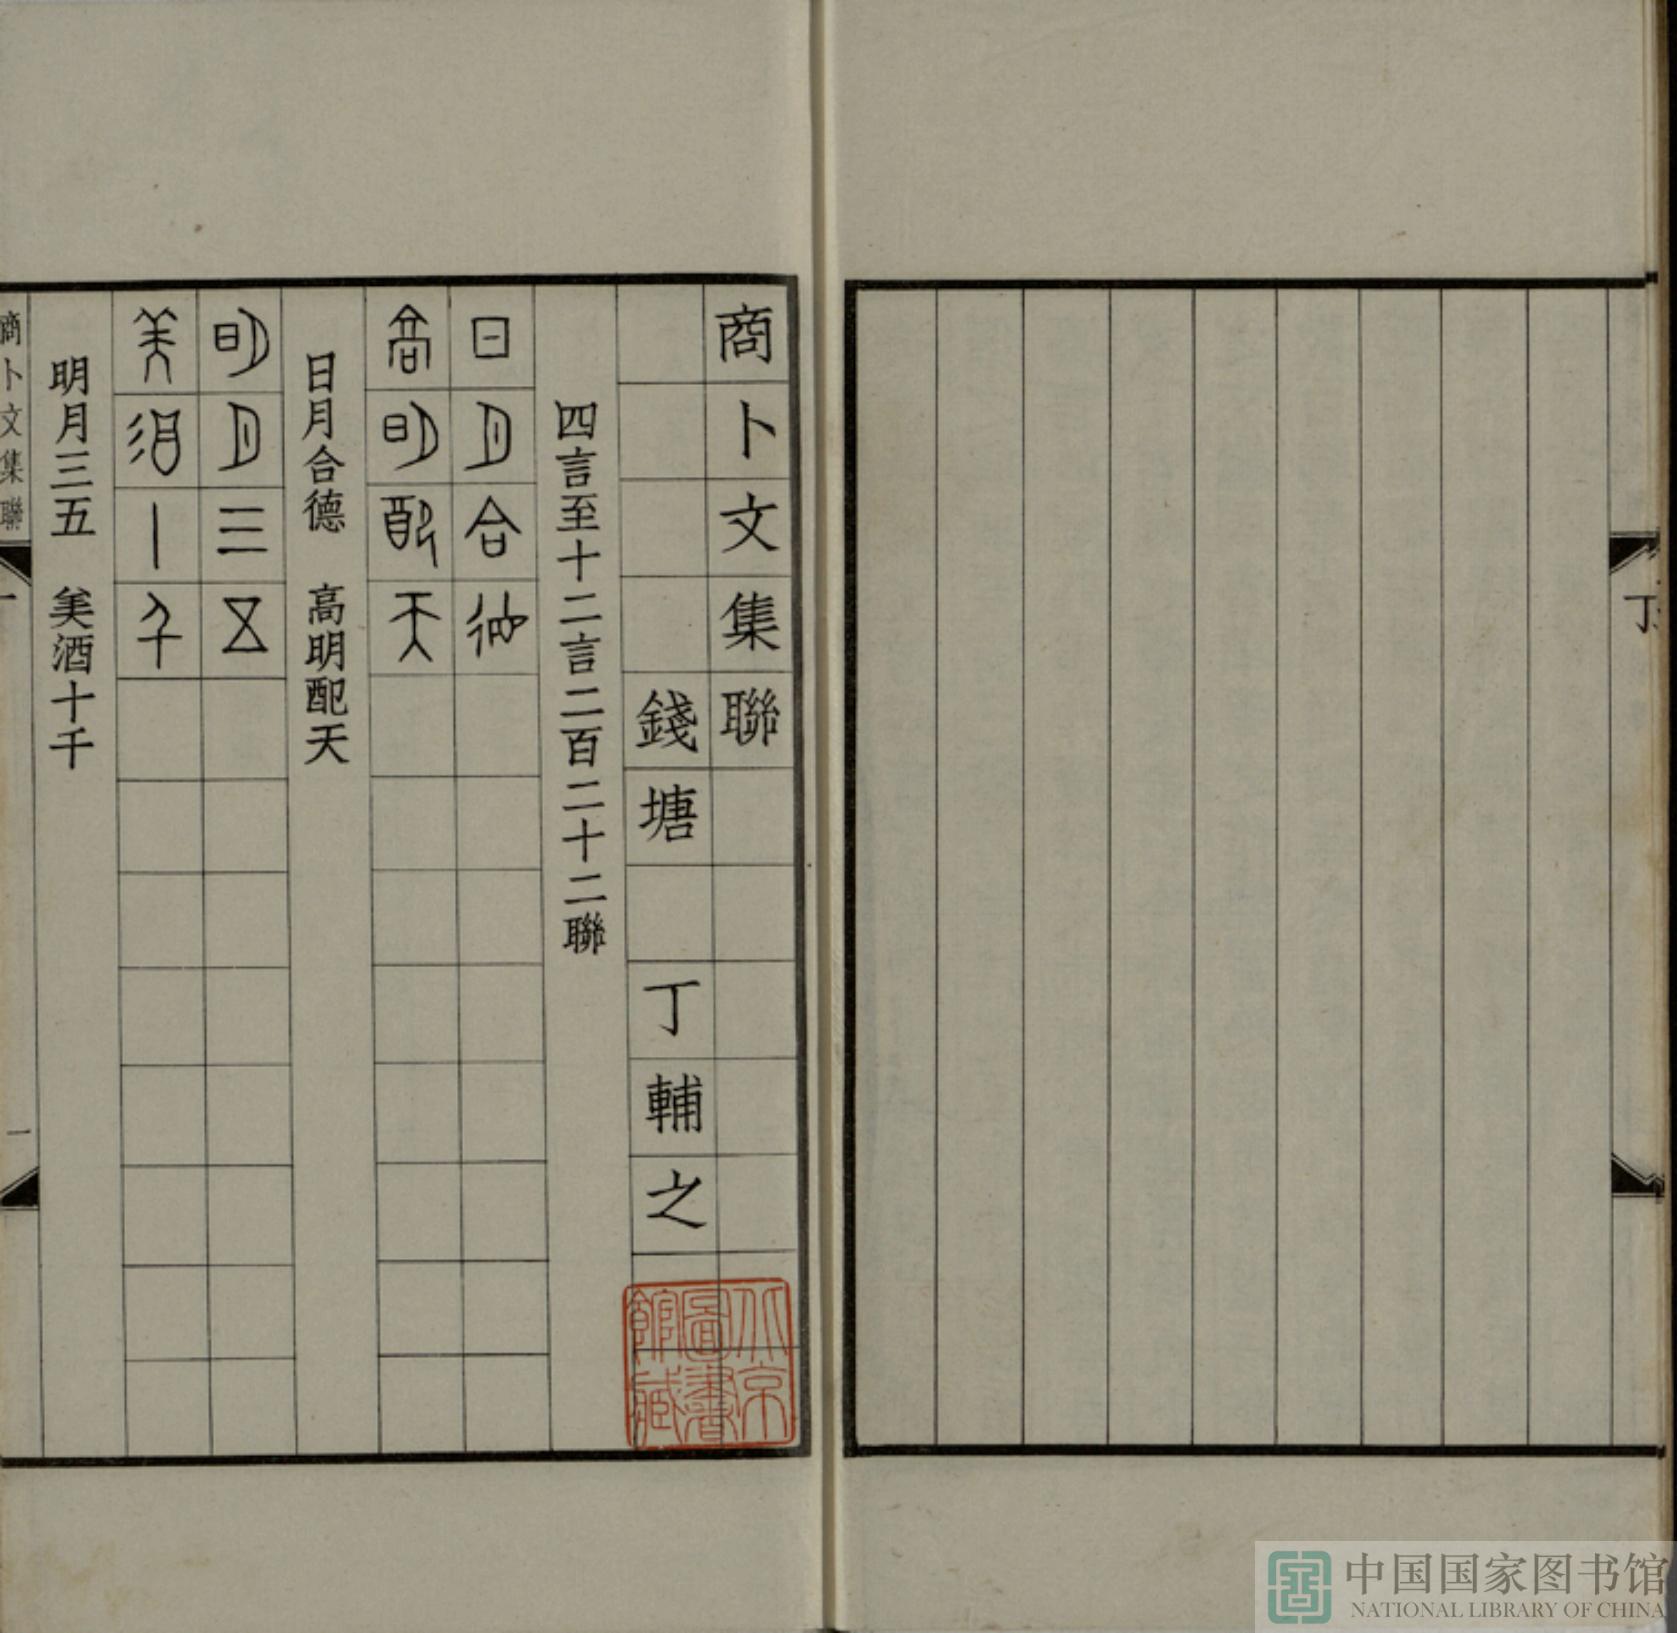 商卜文集聯
錢塘 丁輔之
四言至十二言二百二十二聯
日月合德
高明配天
日月合德 高明配天
明月三五
美酒十千
明月三五 美酒十千
商卜文集聯
一
北京圖書館藏
中国国家图书馆
NATIONAL LIBRARY OF CHINA